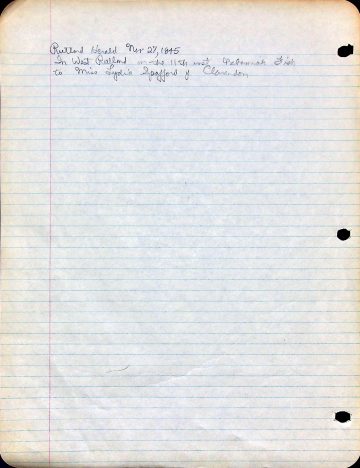 Rutland Herald Nov 27, 1845
In West Rutland on the 11th inst. Fish
to Miss Lydia Spafford of Clarendon